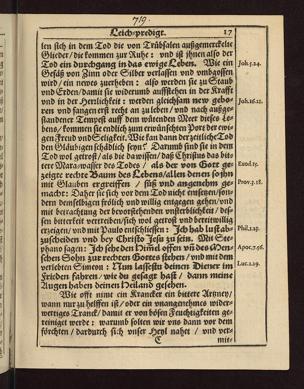 719.
Leich-predigt. 17
len sich in dem Tod die von Trübsalen außgemerckelte
Glieder/ die kommen zur Ruhe: und ist ihnen also der
Tod ein durchgang in das ewige Leben. Wie ein Joh.5.24.
Gefäß von Zinn oder Silber verlasst und umbgossen
wird/ ein newes zuerheben: also werden sie zu Staub
und Erden/ damit sie widerumb aufferstehen in der Krafft
und in der Herrlichkeit: werden gleichsam new gebo- Joh.16.21.
ren und fangen erst recht an zu leben/ und nach außge-
standener Tempest auff dem wütenden Meer dieses Le-
bens/ kommen sie endlich zum erwünschten Port der ewi-
gen Freud und Seligkeit. Wie kan dann der zeitliche Tod
den Gläubigen schädlich seyn? Darumb sind sie in dem
Tod wol getrost/ als die da wissen/ daß Christus das bit-
tere Mara-wasser des Todes/ als der von Gott ge- Exod.15.
zeigte rechte Baum des Lebens/ allen denen so ihn
mit Glauben ergreiffen/ süß und angenehm ge- Prov.3.18.
macht: Daher sie sich vor dem Tod nicht entsetzen/ son-
dern demselbigen frölich und willig entgegen gehen/ und
mit betrachtung der bevorstehenden unsterblichkeit/ des-
sen bitterkeit vertreiben/ sich wol getrost und bereitwillig
erzeigen/ und mit Paulo entschliessen: Ich hab lust ab- Phil.1.23.
zuscheiden und bey Christo Jesu zu sein. Mit Ste-
phano sagen: Ich sehe den Himel offen uñ des Men- Apoc.7.56.
schen Sohn zur rechten Gottes stehen/ und mit dem
verlebten Simeon: Nun lassestu deinen Diener im Luc.2.29.
Frieden fahren/ wie du gesagt hast/ dann meine
Augen haben deinen Heiland gesehen.
Wie offt nimt ein Krancker ein bittere Artzney/
wann nur zu helffen ist/ oder ein unangenehmes wider-
wertiges Tranck/ damit er von bösen Feuchtigkeiten ge-
reiniget werde: warumb solten wir uns dann vor dem
förchten/ dardurch sich unser Heyl nahet/ und ver-
C mit-